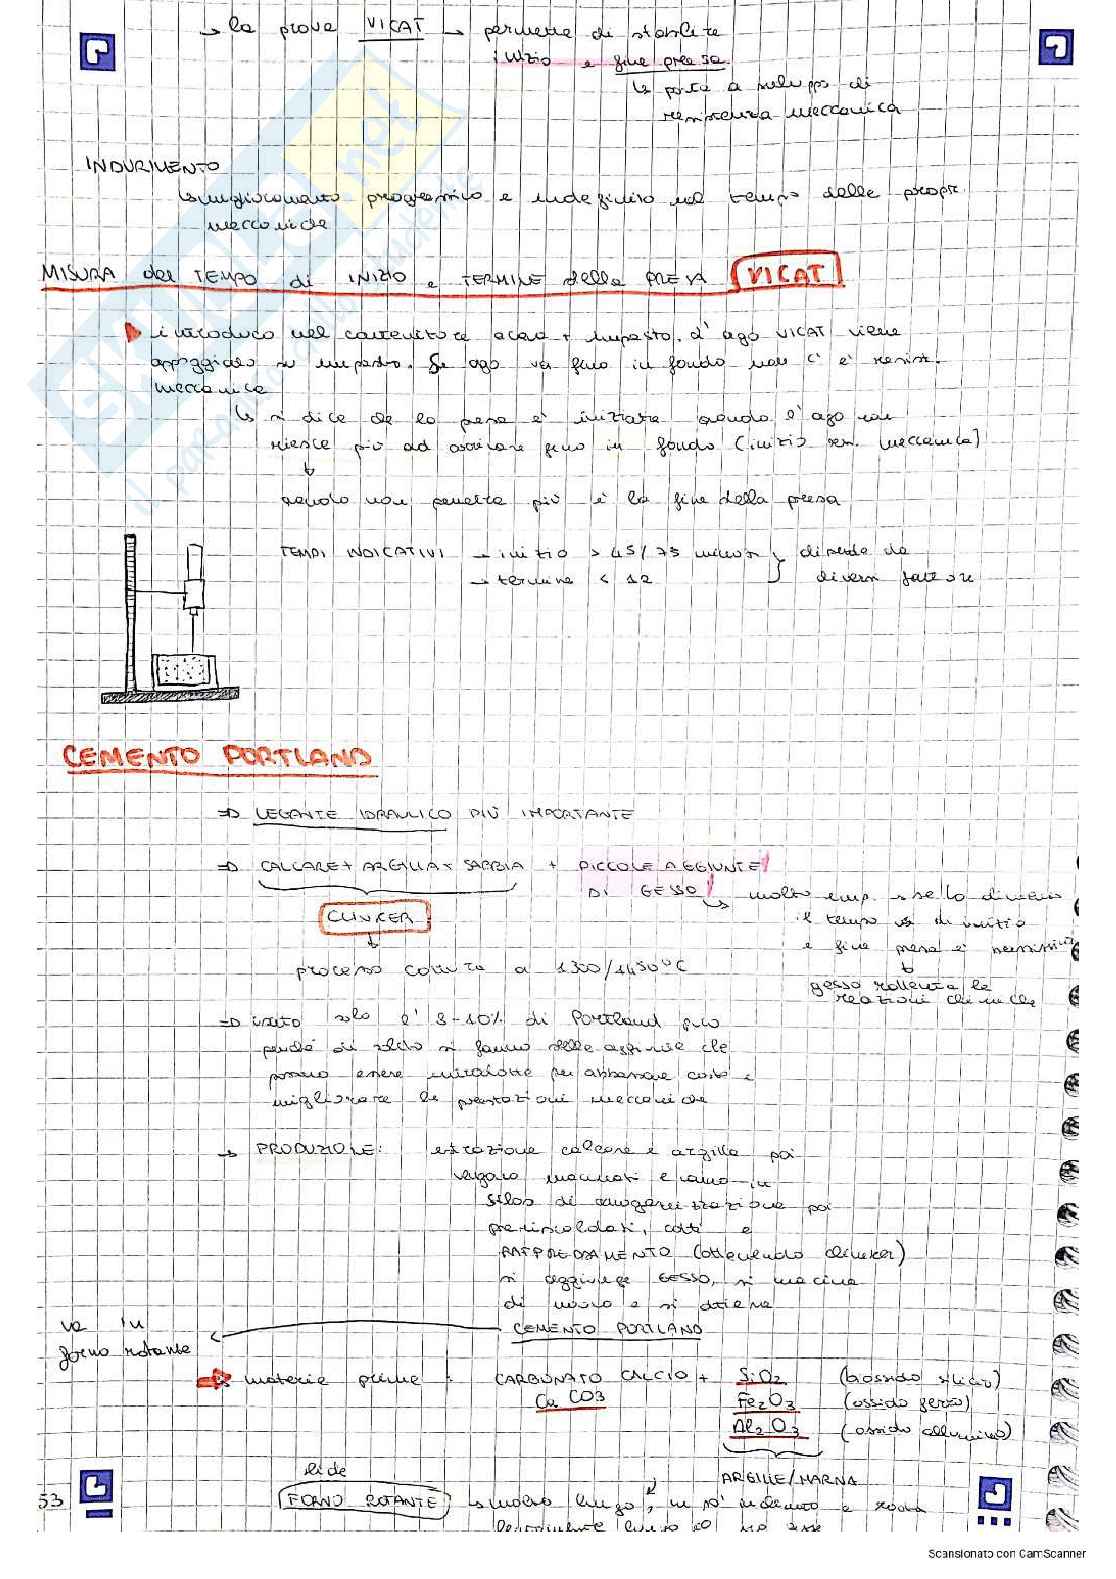 ↳ la prova VICAT → permette di stabilire
inizio e fine presa
↳ porta a sviluppo di
resistenza meccanica
INDURIMENTO
↳ miglioramento progressivo e indefinito nel tempo delle propr.
meccaniche
MISURA del TEMPO di INIZIO e TERMINE della PRESA VICAT
introduco nel contenitore acqua + impasto. L'ago VICAT viene
appoggiato su impasto. Se ago va fino in fondo non c'è resist.
meccanica
↳ si dice che la presa è iniziata quando l'ago non
riesce più ad arrivare fino in fondo (inizio res. meccanica)
↓
quando non penetra più è la fine della presa
TEMPI INDICATIVI → inizio > 45/75 minuti } dipende da
→ termine < 12 diversi fattori
CEMENTO PORTLAND
⇒ LEGANTE IDRAULICO PIÙ IMPORTANTE
⇒ CALCARE + ARGILLA + SABBIA + PICCOLE AGGIUNTE
DI GESSO ↳ molto imp.
il tempo di inizio
CLINKER
e fine presa è
processo cottura a 1300/1450°C
gesso rallenta le
reazioni chimiche
⇒ usato solo l'8-10% di Portland puro
perché di solito si fanno delle aggiunte che
possono essere introdotte per abbassare costo e
migliorare le prestazioni meccaniche
→ PRODUZIONE: estrazione calcare e argilla poi
vengono macinati e vanno in
silos di omogeneizzazione poi
preriscaldati, cotti e
RAFFREDDAMENTO (ottenendo clinker)
si aggiunge GESSO, si macina
di nuovo e si ottiene
va in CEMENTO PORTLAND
forno rotante
materie prime: CARBONATO CALCIO + SiO2 (biossido silicio)
CaCO3 Fe2O3 (ossido ferro)
Al2O3 (ossido alluminio)
slide ARGILLE/MARNA
53 FORNO ROTANTE ↳ molto lungo, un po' inclinato e ruota
lentamente lungo il suo asse
Scansionato con CamScanner